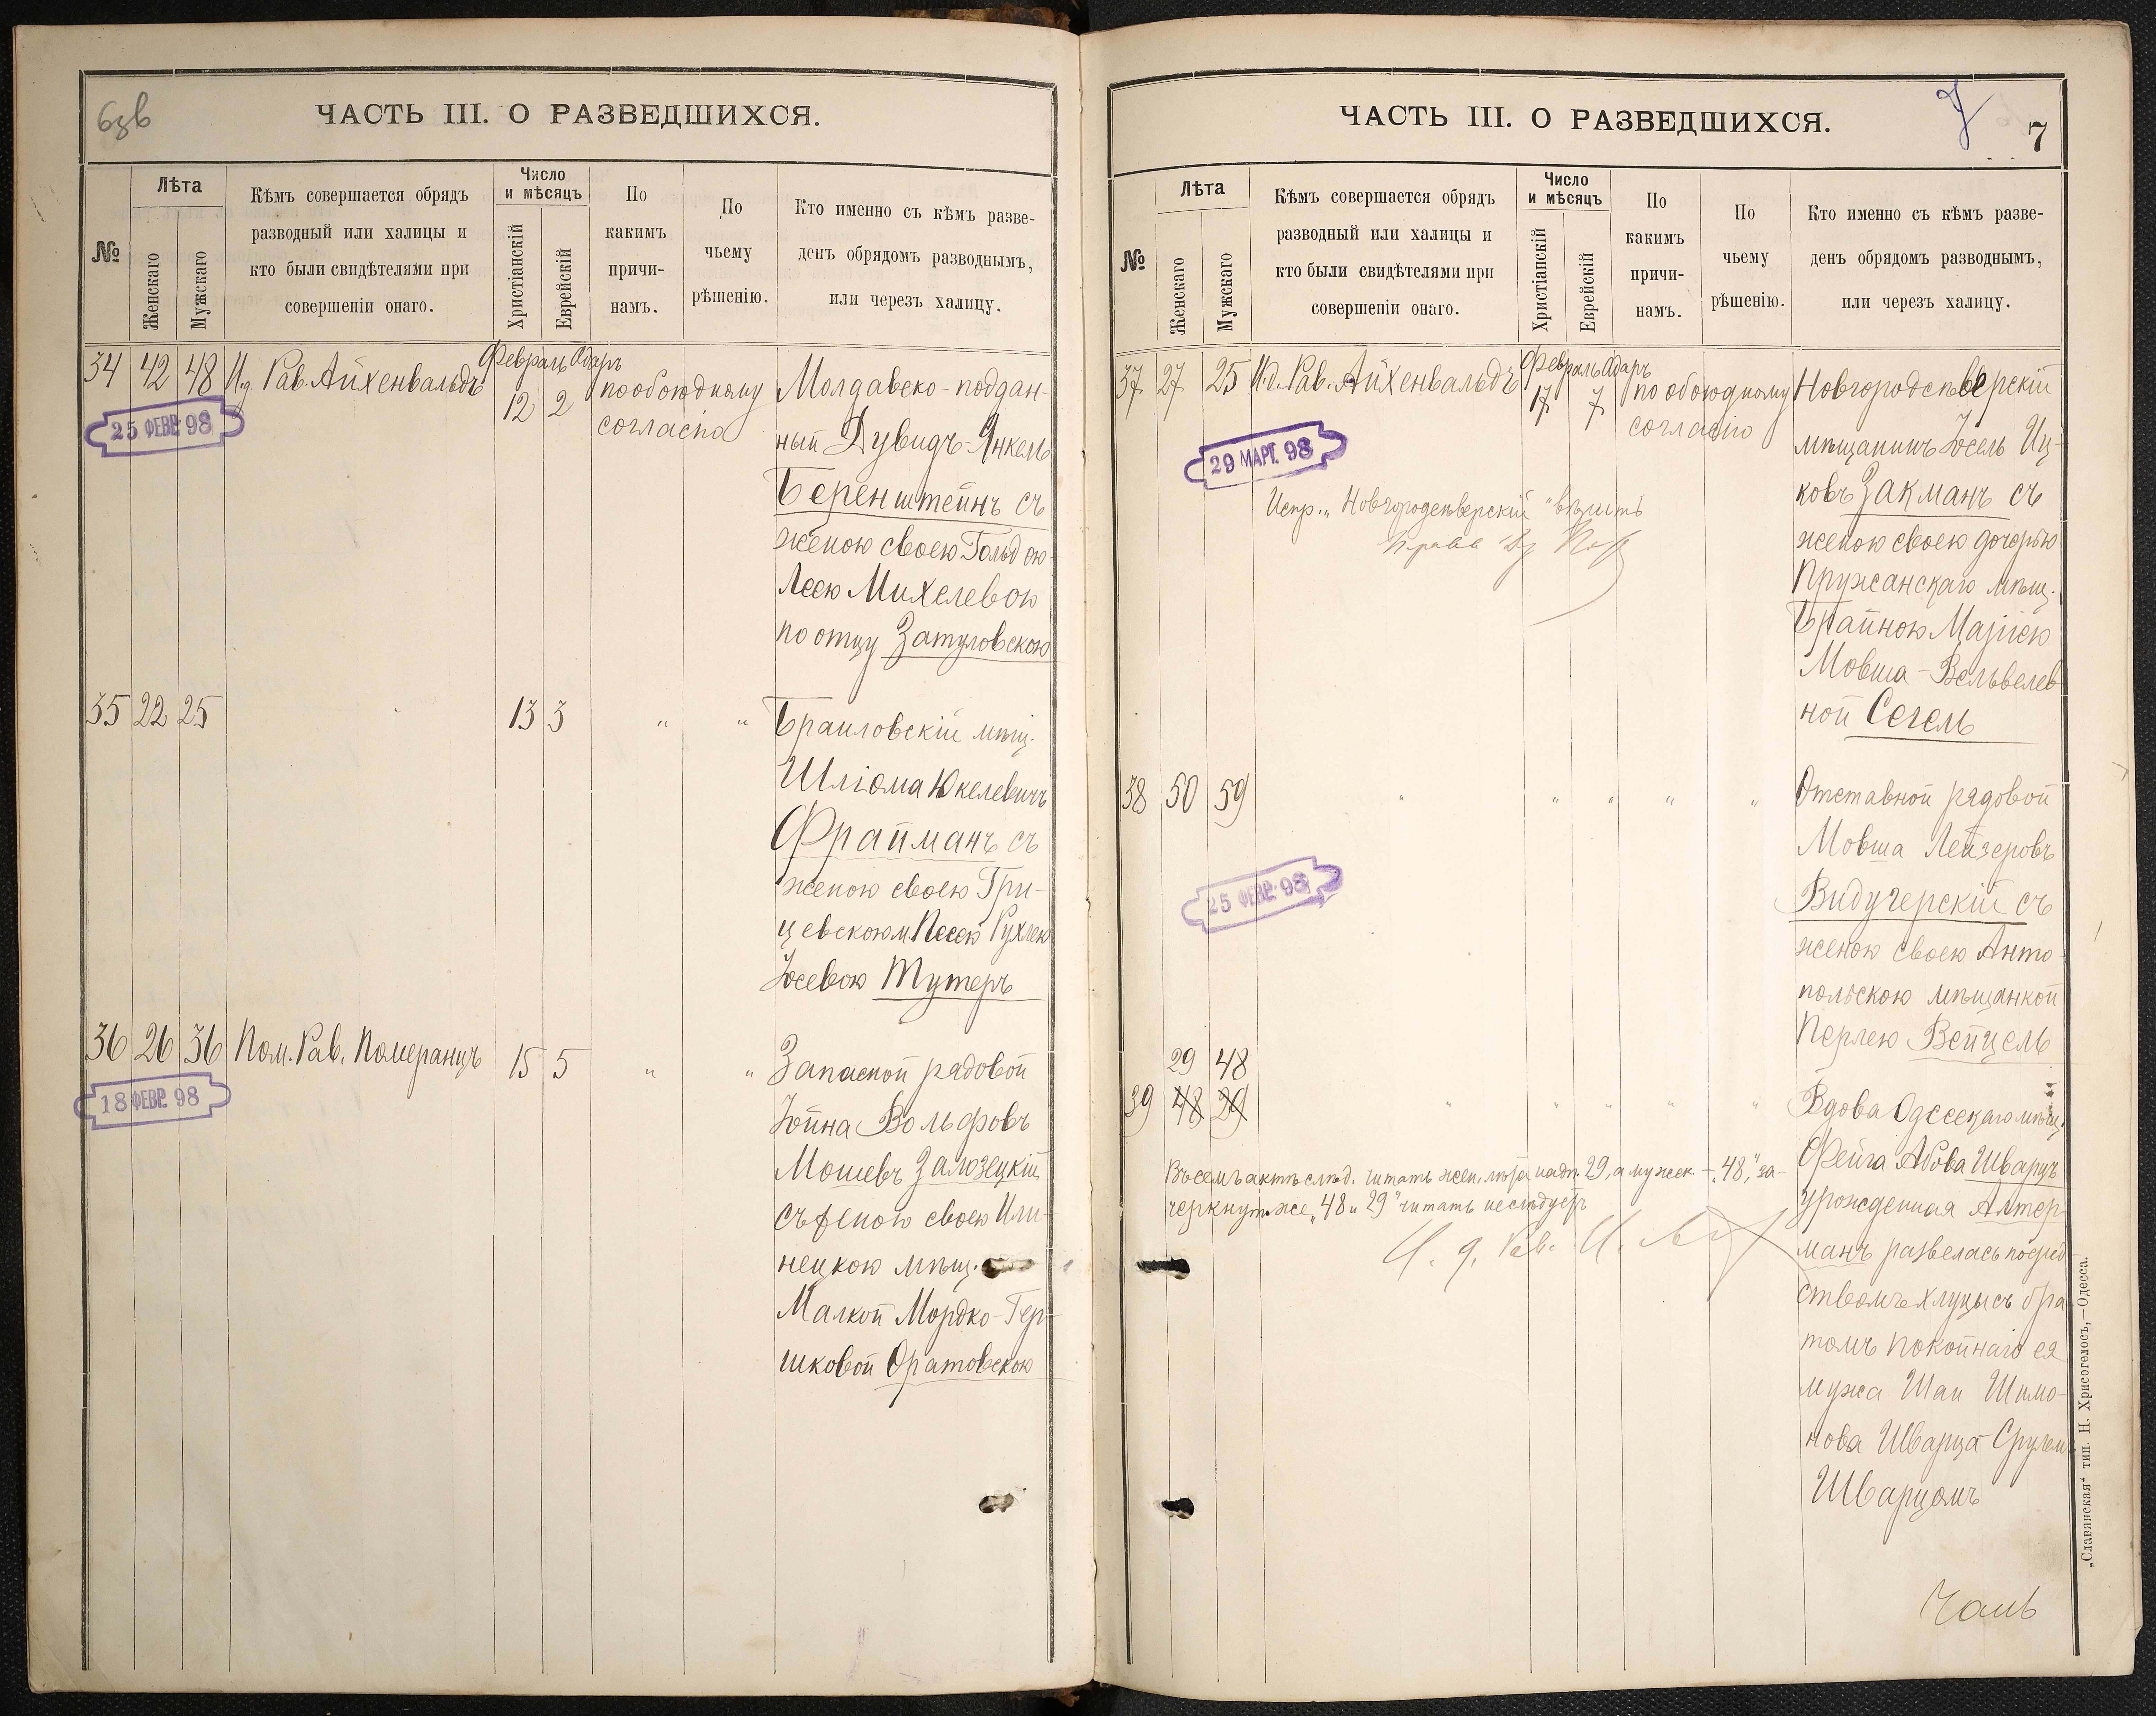 6зв
ЧАСТЬ III. О РАЗВЕДШИХСЯ.
№
Лѣта
Женскаго
Мужскаго
Кѣмъ совершается обрядъ
разводный или халицы и
кто были свидѣтелями при
совершеніи онаго.
Число
и мѣсяцъ
Христіанскій
Еврейскій
По
какимъ
причи-
намъ.
По
чьему
рѣшенію.
Кто именно съ кѣмъ разве-
денъ обрядомъ разводнымъ,
или черезъ халицу.
34 42 48 И.д. Рав. Айхенвальдъ
Февраль Адаръ
12 2
по обоюдному
согласію
25 ФЕВР. 98
Молдавско-поддан-
ный Дувидъ-Янкель
Беренштейнъ съ
женою своею Гольдою
Леею Михелевою
по отцу Затуловскою
35 22 25 13 3 " "
Браиловскій мѣщ.
Шліома Юкелевичъ
Фрайманъ съ
женою своею Гри-
цевскою м. Песею Рухлею
Іосевою Тутеръ
36 26 36 Пом. Рав. Померанцъ 15 5 " "
18 ФЕВР. 98
Запасной рядовой
Іойна Вольфовъ
Мошевъ Залозецкій
съ женою своею Или-
нецкою мѣщ.
Малкой Мордко-Гер-
шковой Оратовскою
ЧАСТЬ III. О РАЗВЕДШИХСЯ.
7
7
№
Лѣта
Женскаго
Мужскаго
Кѣмъ совершается обрядъ
разводный или халицы и
кто были свидѣтелями при
совершеніи онаго.
Число
и мѣсяцъ
Христіанскій
Еврейскій
По
какимъ
причи-
намъ.
По
чьему
рѣшенію.
Кто именно съ кѣмъ разве-
денъ обрядомъ разводнымъ,
или черезъ халицу.
37 27 25 И.д. Рав. Айхенвальдъ
Февраль Адаръ
17 7
по обоюдному
согласію
29 МАРТ. 98
Испр. „Новгородсѣверскій" вѣрить
Новгородсѣверскій
мѣщанинъ Іосель Иц-
ковъ Закманъ съ
женою своею дочерью
Пружанскаго мѣщ.
Брайною Маріею
Мовша-Вельвелев
ной Сегель
38 50 59 " " " " "
25 ФЕВР. 98
Отставной рядовой
Мовша Лейзеровъ
Видучерскій съ
женою своею Анто-
польскою мѣщанкой
Перлею Вейцель
29 48
39 48 29 " " " " "
Въ семъ актѣ слѣд. читать жен. лѣта надп. 29, а мужск – „48," за-
черкнутые же „48 и 29" читать не слѣдуетъ
И. д. Рав.
Вдова Одесскаго мѣщ.
Фейга Абова Шварцъ
урожденная Алтер-
манъ развелась посред
ствомъ хлуцы съ бра-
томъ покойнаго ея
мужа Шаи Шимо-
нова Шварца Срулем
Шварцомъ
„Славянская" тип. Н. Хрисогелосъ,—Одесса.